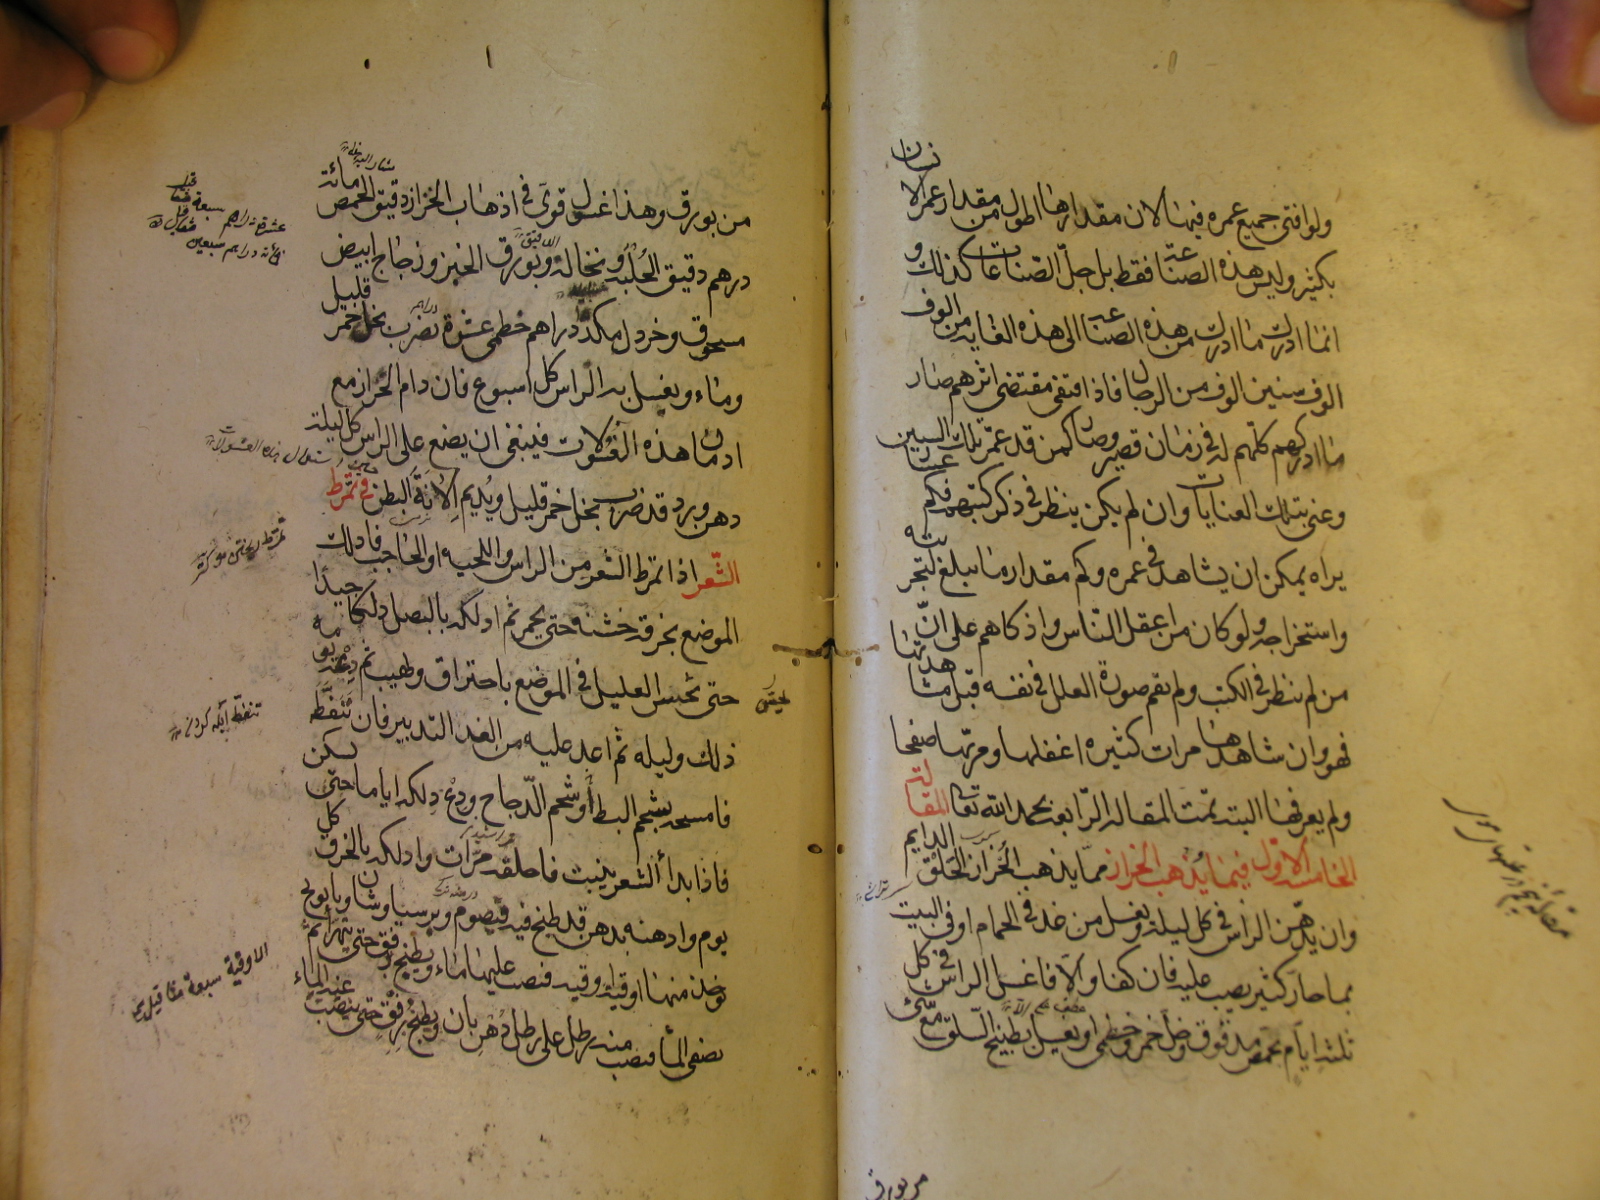 ولو افنى جميع عمره فيها لان مقدارها اطول من مقدار عمر الانسان
بكثير وليس هذه الصناعة فقط بل جل الصناعات كذلك و
انما ادرك ما ادرك من هذه الصناعة الى هذه الغاية من الوف
الوف سنين الوف من الرجال فاذا اقتفى مقتضى اثرهم صار
ما ادركهم كلهم له في زمان قصير وصار كمن قد عمر تلك السنين
وعنى بتلك العنايات وان لم يكن ينظر في ذكر كتبهم فكم عسا
يراه يمكن ان يشاهد في عمره وكم مقدار ما يبلغ تجربته
واستخراجه ولو كان من اعقل الناس واذكاهم على ان
من لم ينظر في الكتب ولم يقم صورة العلل في نفسه قبل مشاهدتها
فهو وان شاهدها مرات كثيره اغفلها ومر بها صفحا
ولم يعرفها البته تمت المقاله الرابعة بحمد الله تعالى المقالة
الخامسه الاول فيما يذهب الحزاز مما يذهب الحزاز الحلق الدايم
وان يدهن الراس في كل ليلة ويغسل من غد في الحمام او في البيت
بماء حار كثير يصب عليه فان كفا والا فاغسل الراس في كل
ثلثة ايام بحمص مدقوق وخل خمر وخطمى او يغسل بطبيخ السلق مع شئ
من بورق
من بورق وهذا غسول قوى في اذهاب الحزاز دقيق الحمص مائة
درهم دقيق الحلبة ونخالة وبورق الخبز وزجاج ابيض
مسحوق وخردل مكد دراهم خطمى عشرة يضرب بخل خمر قليل
وماء ويغسل به الراس كل اسبوع فان دام الحزاز مع
ادمان هذه الغسولات فينبغى ان يضع على الراس كل ليلة
دهن ورد قد ضرب بخل خمر قليل ويديم الانة البطن في تمرط
الشعر اذا تمرط الشعر من الراس واللحيه او الحاجب فادلك
الموضع بخرقة خشنه حتى يحمر ثم ادلكه بالبصل دلكا جيدا
حتى يحس العليل في الموضع باحتراق ولهيب ثم دعه يومه
ذلك وليله ثم اعد عليه من الغد التدبير فان تنفط
فامسحه بشحم البط او شحم الدجاج ودع دلكه اياما حتى يسكن
فاذا بدأ الشعر ينبت فاحلقه مرات وادلكه بالخرق كل
يوم وادهنه بدهن قد طبخ فيه قيصوم وبرسياوشان وبابونج
توخذ منها اوقية وقيه فنصب عليها ماء ويطبخ برفق حتى يتهرأ ثم
يصفى الماء فيصب منه رطل على رطل دهن بان ويطبخ برفق حتى ينضب عنه الماء
عشرة دراهم سبعة مثاقيل
تنفط آبله كردن
الاوقية سبعة مثاقيل